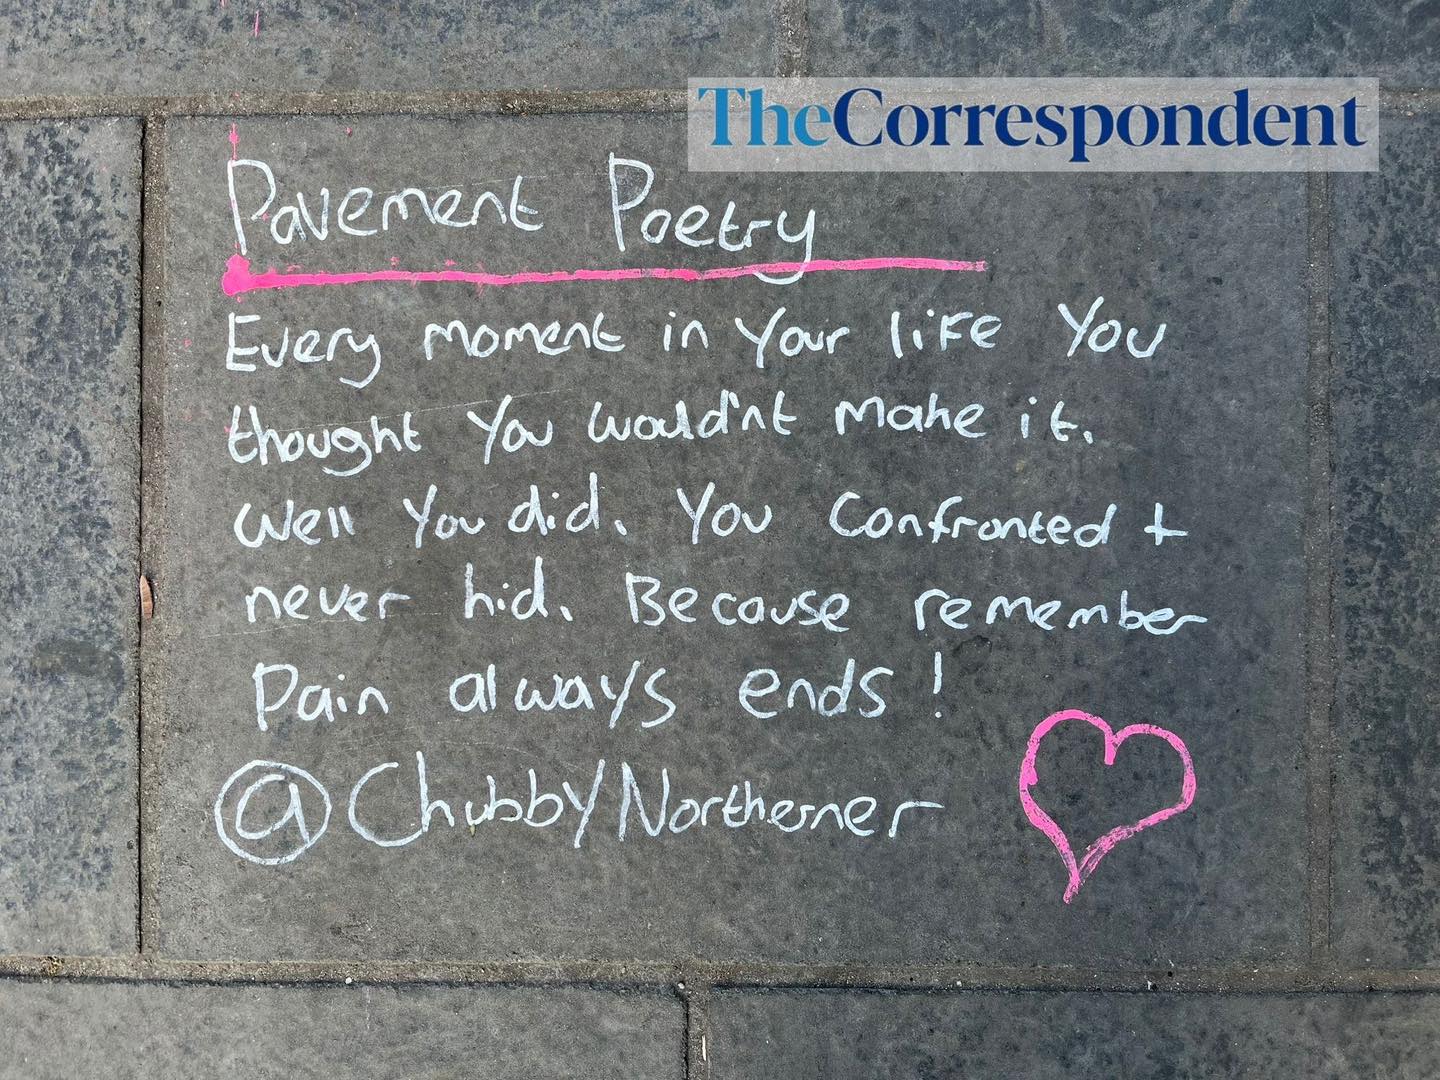 TheCorrespondent
Pavement Poetry
Every moment in your life you
thought you would'nt make it.
Well you did. You confronted +
never hid. Because remember
Pain always ends!
@ChubbyNortherner